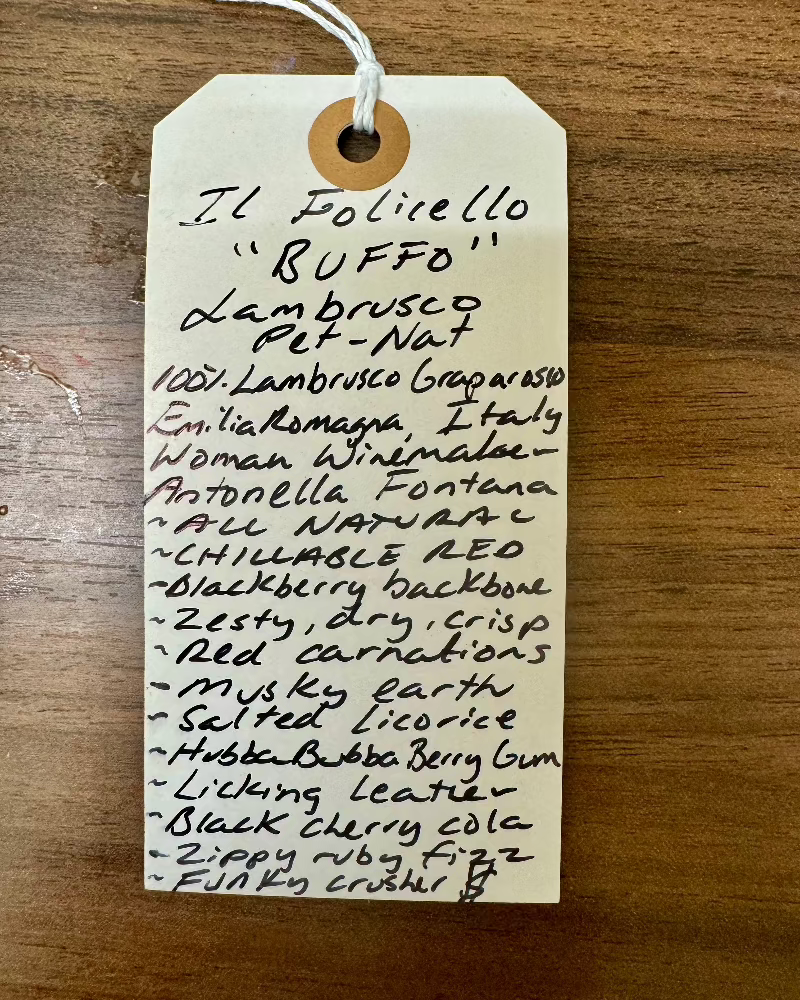 Il Folicello
"BUFFO"
Lambrusco
Pet-Nat
100% Lambrusco Graparosso
Emilia Romagna, Italy
Woman Winemaker
Antonella Fontana
~ALL NATURAL
~CHILLABLE RED
~Blackberry backbone
~Zesty, dry, crisp
~Red carnations
~Musky earth
~Salted licorice
~Hubba Bubba Berry Gum
~Licking Leather
~Black cherry cola
~Zippy ruby fizz
~Funky crusher $